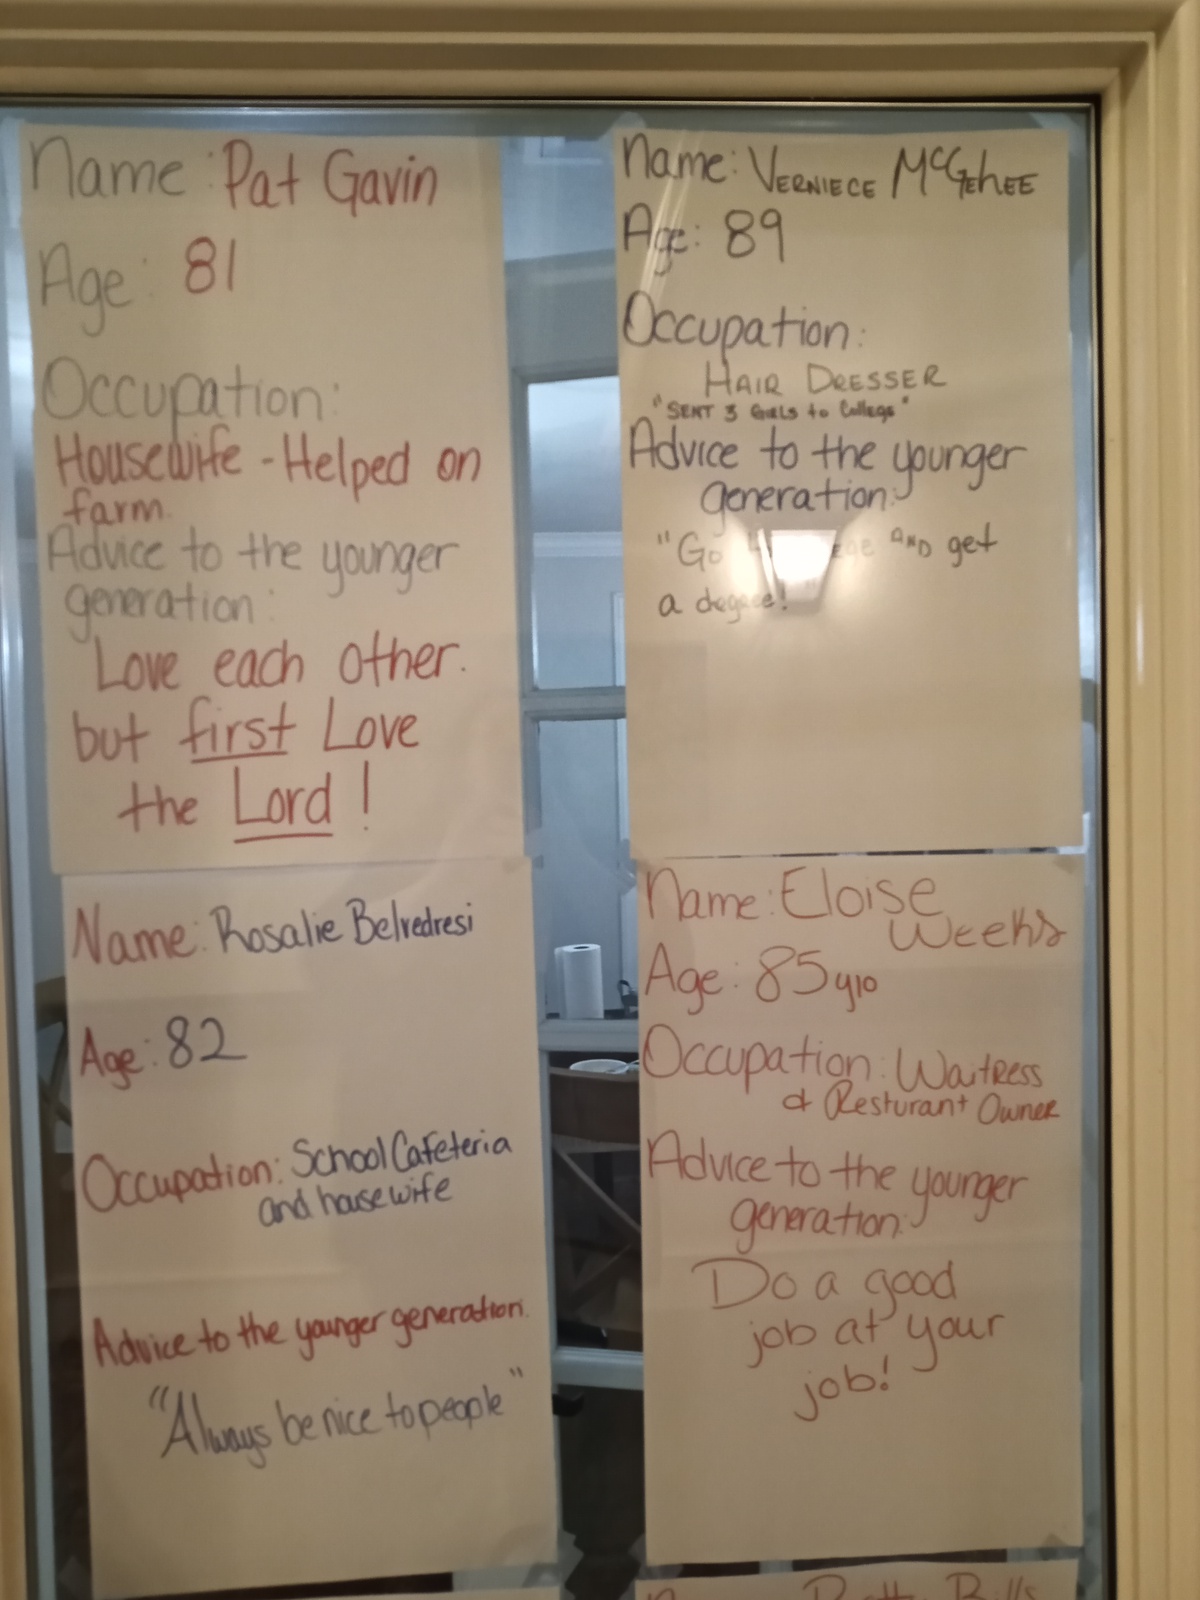 Name: Pat Gavin
Age: 81
Occupation:
Housewife - Helped on
farm.
Advice to the younger
generation:
Love each other.
but first Love
the Lord!
Name: VERNIECE McGEhEE
Age: 89
Occupation:
HAIR DRESSER
"SENT 3 GiRLS to College"
Advice to the younger
generation:
"Go AND get
a degree!
Name: Rosalie Belvedresi
Age: 82
Occupation: School Cafeteria
and housewife
Advice to the younger generation:
"Always be nice to people"
Name: Eloise
Weeks
Age: 85 y/o
Occupation: Waitress
& Resturant Owner
Advice to the younger
generation:
Do a good
job at your
job!